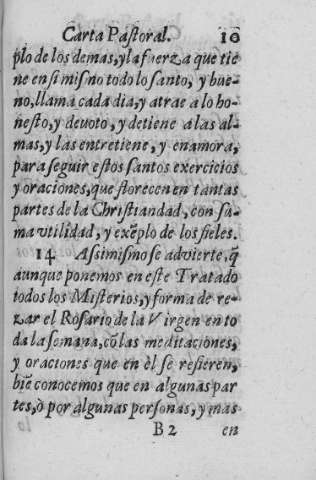 Carta Pastoral. 10
plo de los demas, y la fuerza que tie
ne en si mismo todo lo santo, y bue-
no, llama cada dia, y atrae a lo ho-
nesto, y deuoto, y detiene a las al-
mas, y las entretiene, y enamora,
para seguir estos santos exercicios
y oraciones, que florecen en tantas
partes de la Christiandad, con su-
ma vtilidad, y exẽplo de los fieles.
14 Assimismo se advierte, q̃
aunque ponemos en este Tratado
todos los Misterios, y forma de re-
zar el Rosario de la Virgen en to
da la semana, cõ las meditaciones,
y oraciones que en èl se refieren,
biẽ conocemos que en algunas par
tes, ò por algunas personas, y mas
B 2 en